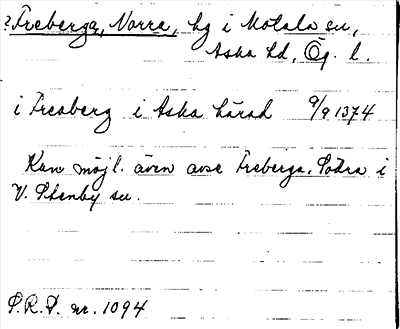 ? Freberga, Norra, by i Motala sn,
Aska hd, Ög. l.
i Freaberg i Aska härad 9/9 1374
Kan möjl. även avse Freberga, Södra i
V. Stenby sn.
S.R.P. nr. 1094